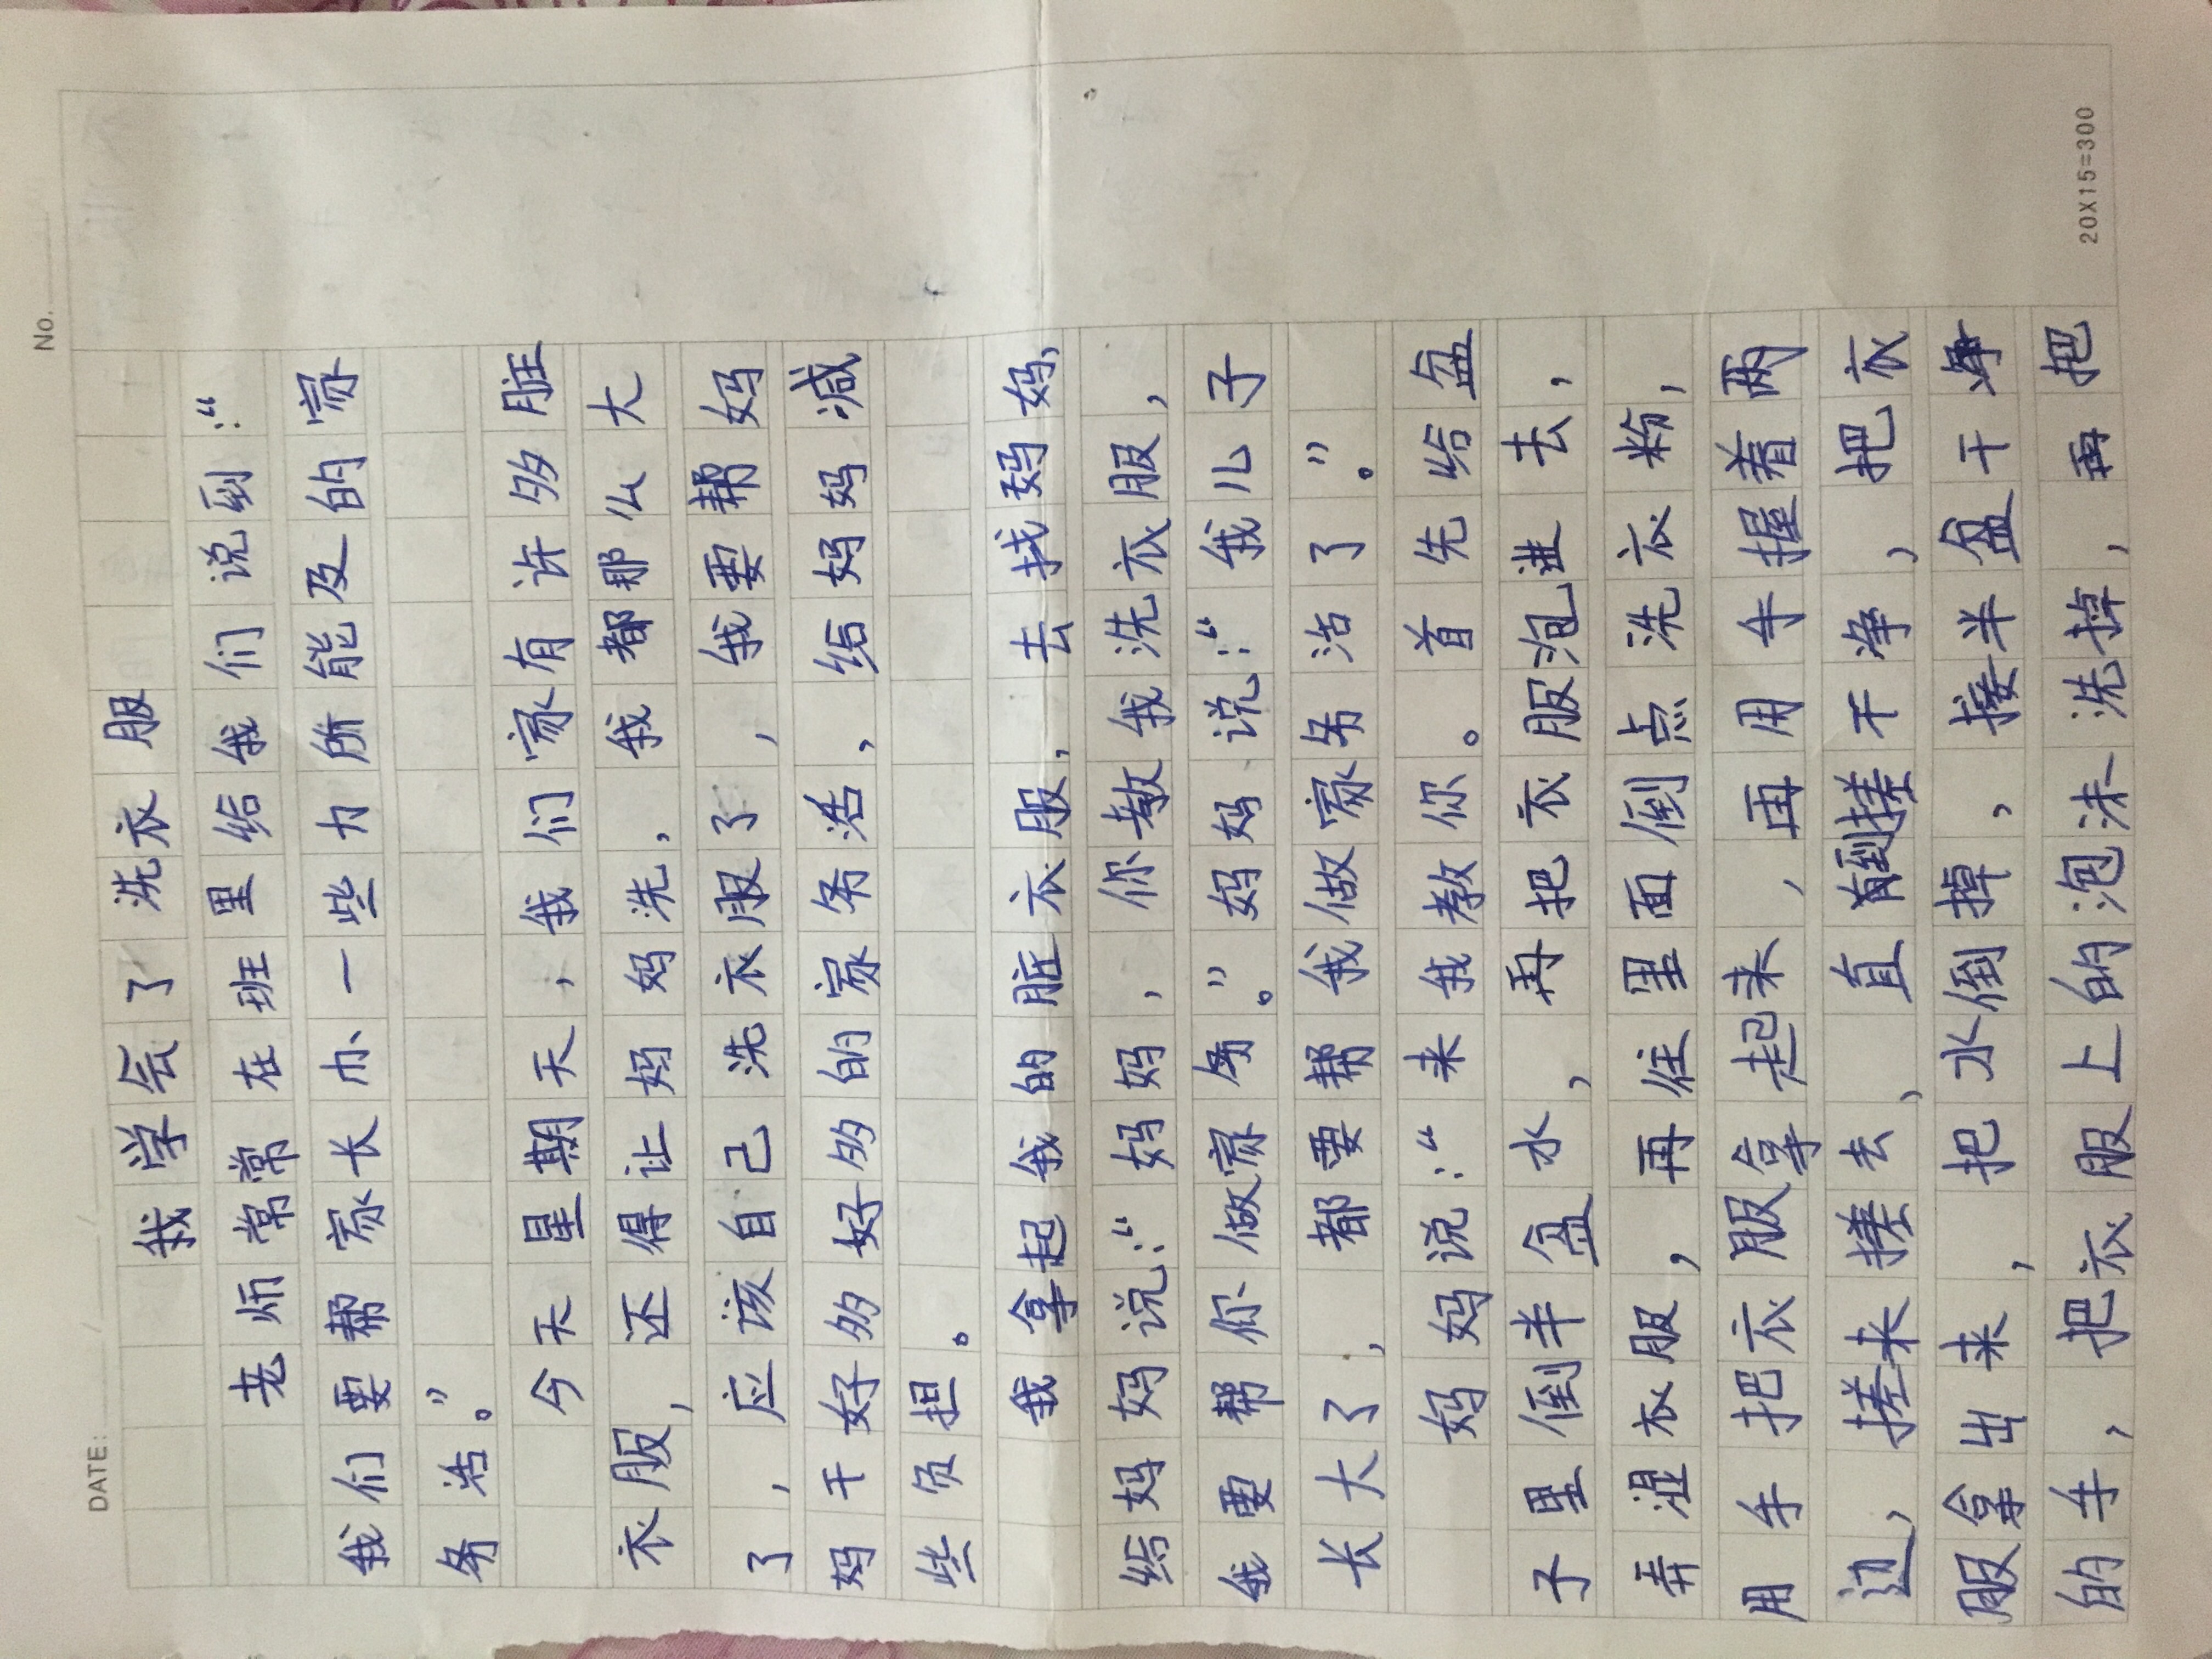 No.
DATE:
我学会了洗衣服
老师常常在班里给我们说到：“
我们要帮家长办一些力所能及的家
务活。”
今天星期天，我们家有许多脏
衣服，还得让妈妈洗，我都那么大
了，应该自己洗衣服了，我要帮妈
妈干好多好多的家务活，给妈妈减
些负担。
我拿起我的脏衣服，去找妈妈，
给妈妈说：“妈妈，你教我洗衣服，
我要帮你做家务。”妈妈说：“我儿子
长大了，都要帮我做家务活了”。
妈妈说：“来我教你。首先给盆
子里倒半盆水，再把衣服泡进去，
弄湿衣服，再往里面倒点洗衣粉，
用手把衣服拿起来，再用手握着两
边，搓来搓去，直到搓干净，把衣
服拿出来，把水倒掉，接半盆干净
的手，把衣服上的泡沫洗掉，再把
20X15=300